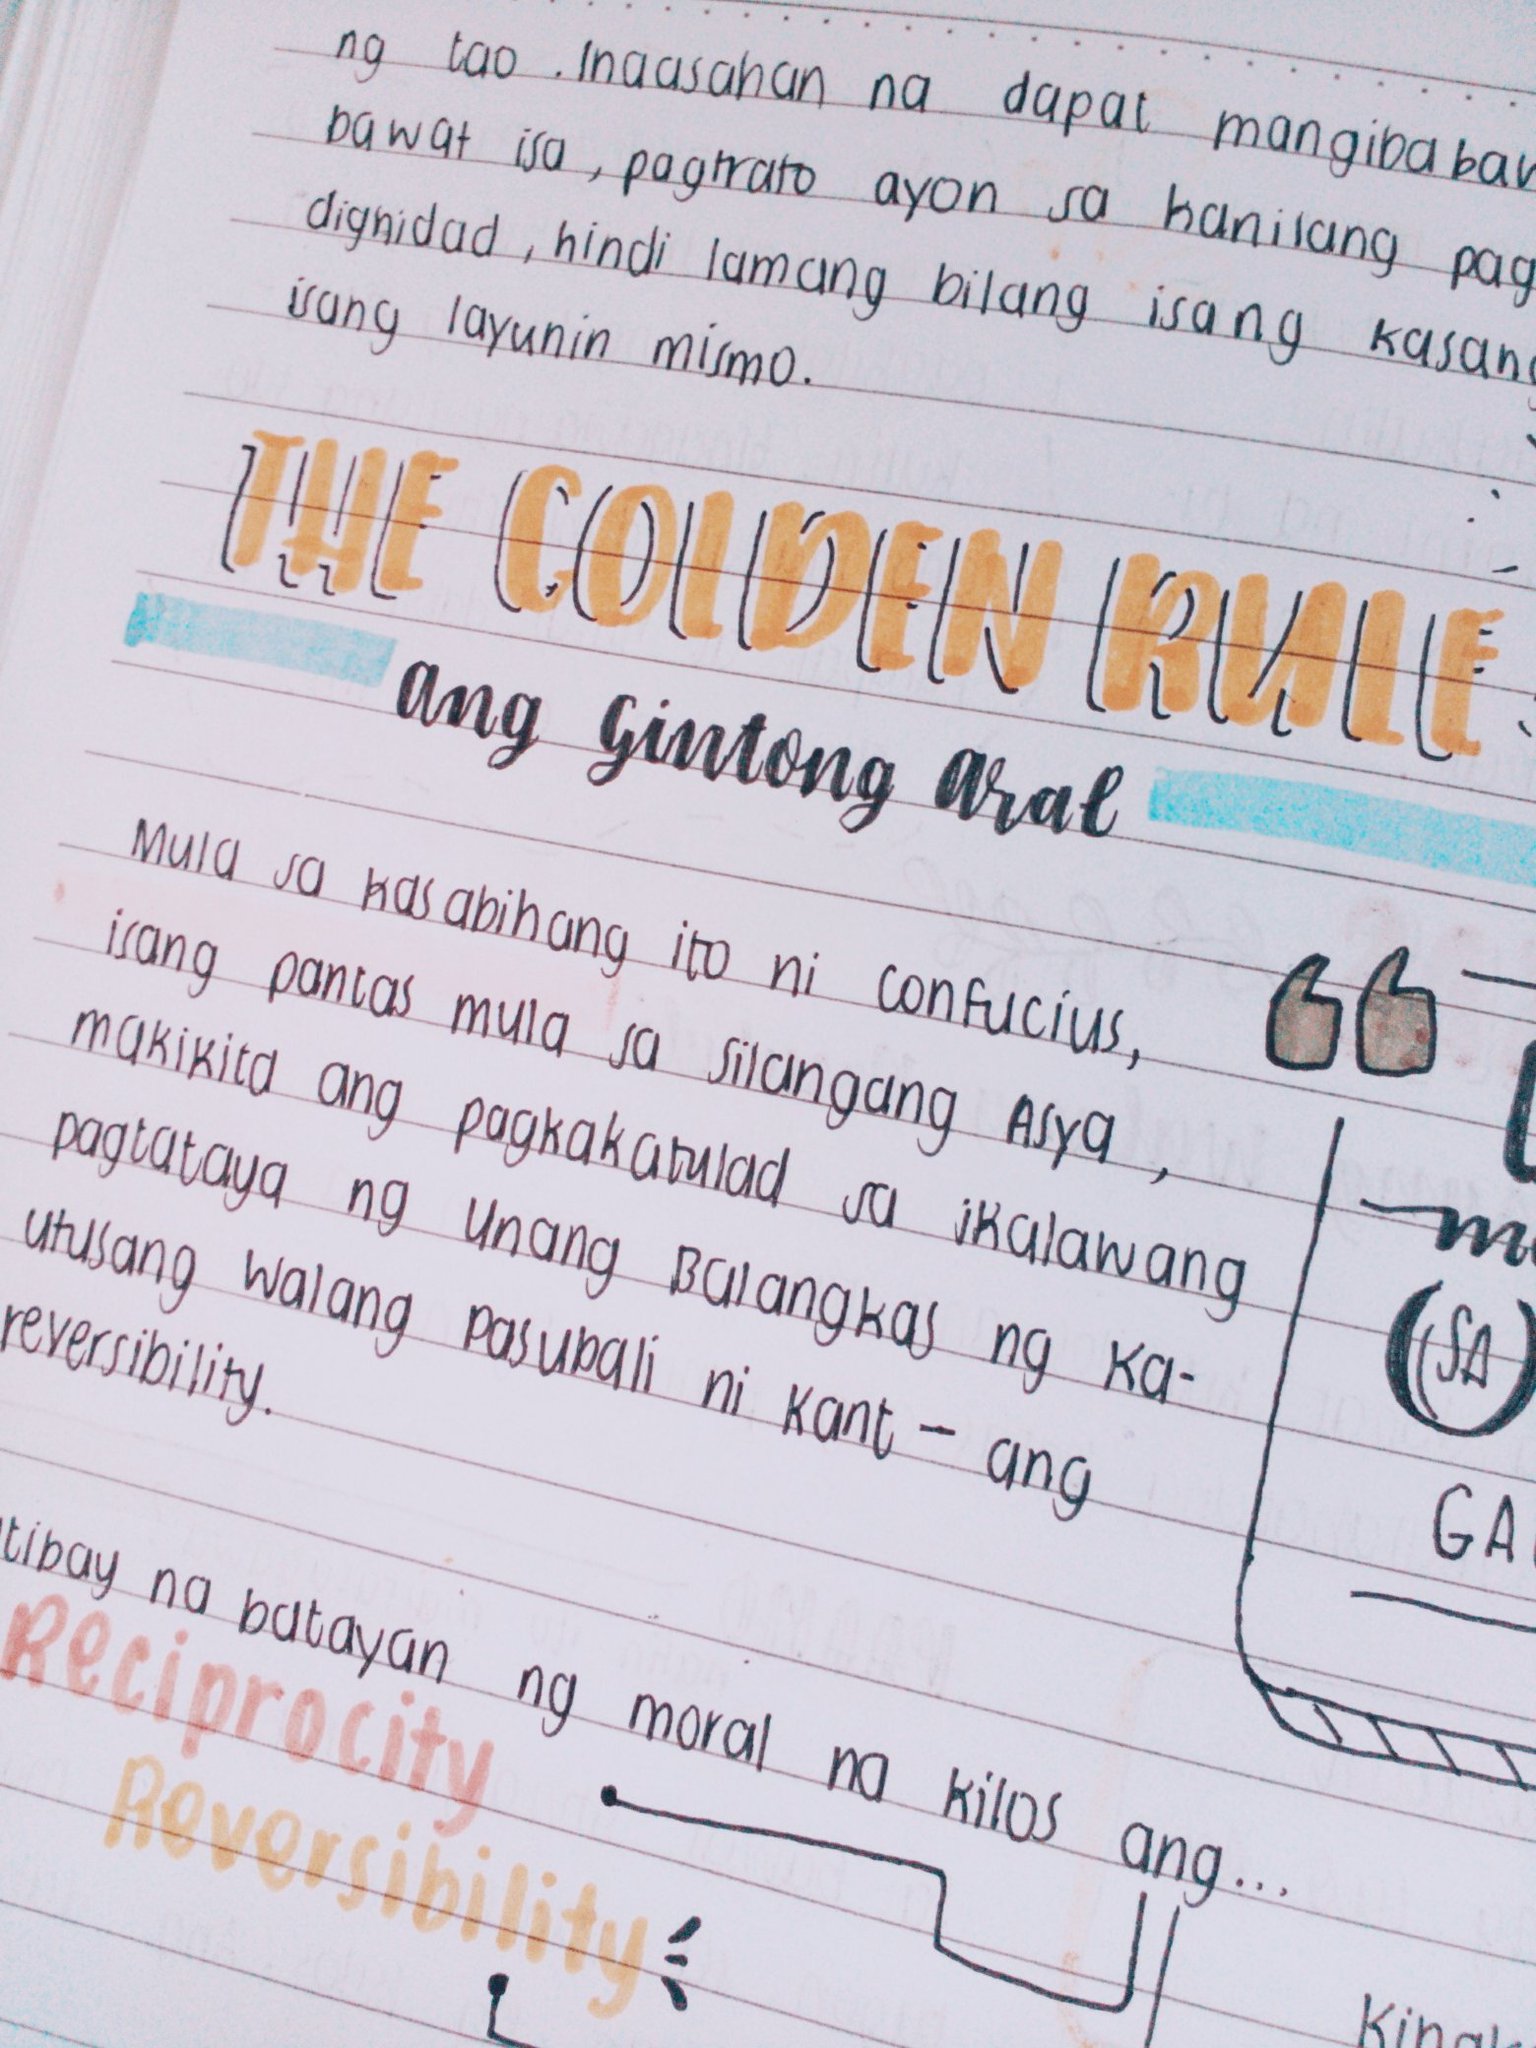 ng tao. Inaasahan na dapat
bawat isa, pagtrato ayon sa kanilang
dignidad, hindi lamang bilang isang
isang layunin mismo.
THE GOLDEN RULE
ang Gintong aral
Mula sa kasabihang ito ni Confucius,
isang pantas mula sa Silangang Asya,
makikita ang pagkakatulad sa ikalawang
pagtataya ng Unang Balangkas ng Ka-
utusang Walang Pasubali ni Kant - ang
reversibility.
na batayan ng moral na kilos ang...
Reciprocity
Reversibility
(SA)